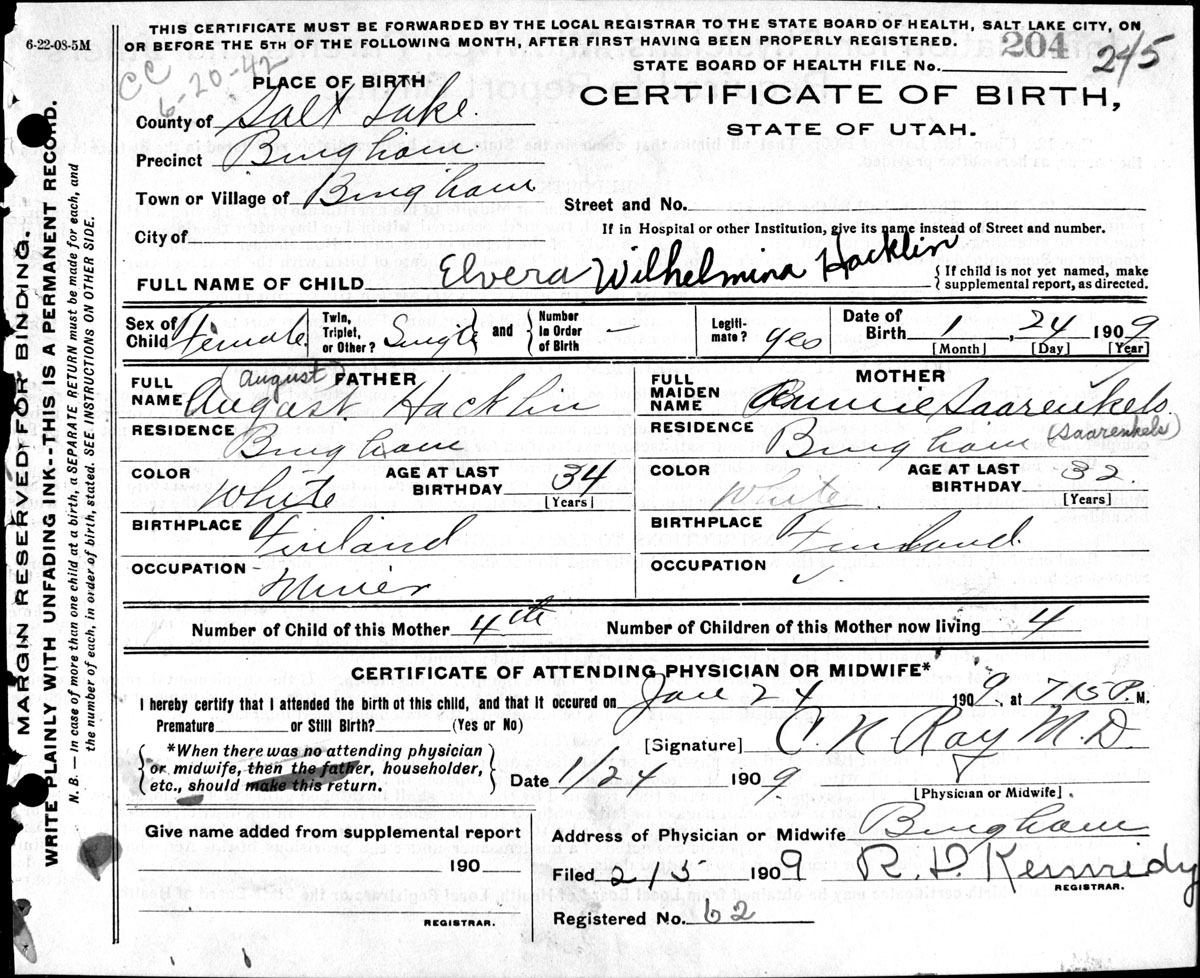 THIS CERTIFICATE MUST BE FORWARDED BY THE LOCAL REGISTRAR TO THE STATE BOARD OF HEALTH, SALT LAKE CITY, ON
OR BEFORE THE 5TH OF THE FOLLOWING MONTH, AFTER FIRST HAVING BEEN PROPERLY REGISTERED.
6-22-08-5M
204
245
STATE BOARD OF HEALTH FILE No.
CC
6-20-42
PLACE OF BIRTH
CERTIFICATE OF BIRTH,
STATE OF UTAH.
County of Salt Lake.
Precinct Bingham
Town or Village of Bingham
Street and No.
City of
If in Hospital or other Institution, give its name instead of Street and number.
FULL NAME OF CHILD Elvera Wilhelmina Hacklin
{ If child is not yet named, make
supplemental report, as directed.
Sex of Child Female
Twin, Triplet, or Other? Single
and { Number in Order of Birth –
Legiti-mate? yes
Date of Birth 1, 24 1909
[Month] [Day] [Year]
FULL NAME FATHER (August)
August Hacklin
FULL MAIDEN NAME MOTHER
Saarenkels
RESIDENCE Bingham
RESIDENCE Bingham (Saarenkels)
COLOR White
AGE AT LAST BIRTHDAY 34
[Years]
COLOR White
AGE AT LAST BIRTHDAY 32
[Years]
BIRTHPLACE Finland
BIRTHPLACE Finland
OCCUPATION Miner
OCCUPATION
Number of Child of this Mother 4th
Number of Children of this Mother now living 4
CERTIFICATE OF ATTENDING PHYSICIAN OR MIDWIFE*
I hereby certify that I attended the birth of this child, and that it occured on Jan 24 1909, at 7.15 P. M.
Premature or Still Birth? (Yes or No)
[Signature] C. N. Ray M.D.
{ *When there was no attending physician
or midwife, then the father, householder,
etc., should make this return. }
Date 1/24 1909
[Physician or Midwife]
Give name added from supplemental report
190
REGISTRAR.
Address of Physician or Midwife Bingham
Filed 2/3 1909 R. D. Kennridy
REGISTRAR.
Registered No. 62
MARGIN RESERVED FOR BINDING
WRITE PLAINLY WITH UNFADING INK--THIS IS A PERMANENT RECORD.
N. B. — In case of more than one child at a birth, a SEPARATE RETURN must be made for each, and
the number of each, in order of birth, stated. SEE INSTRUCTIONS ON OTHER SIDE.